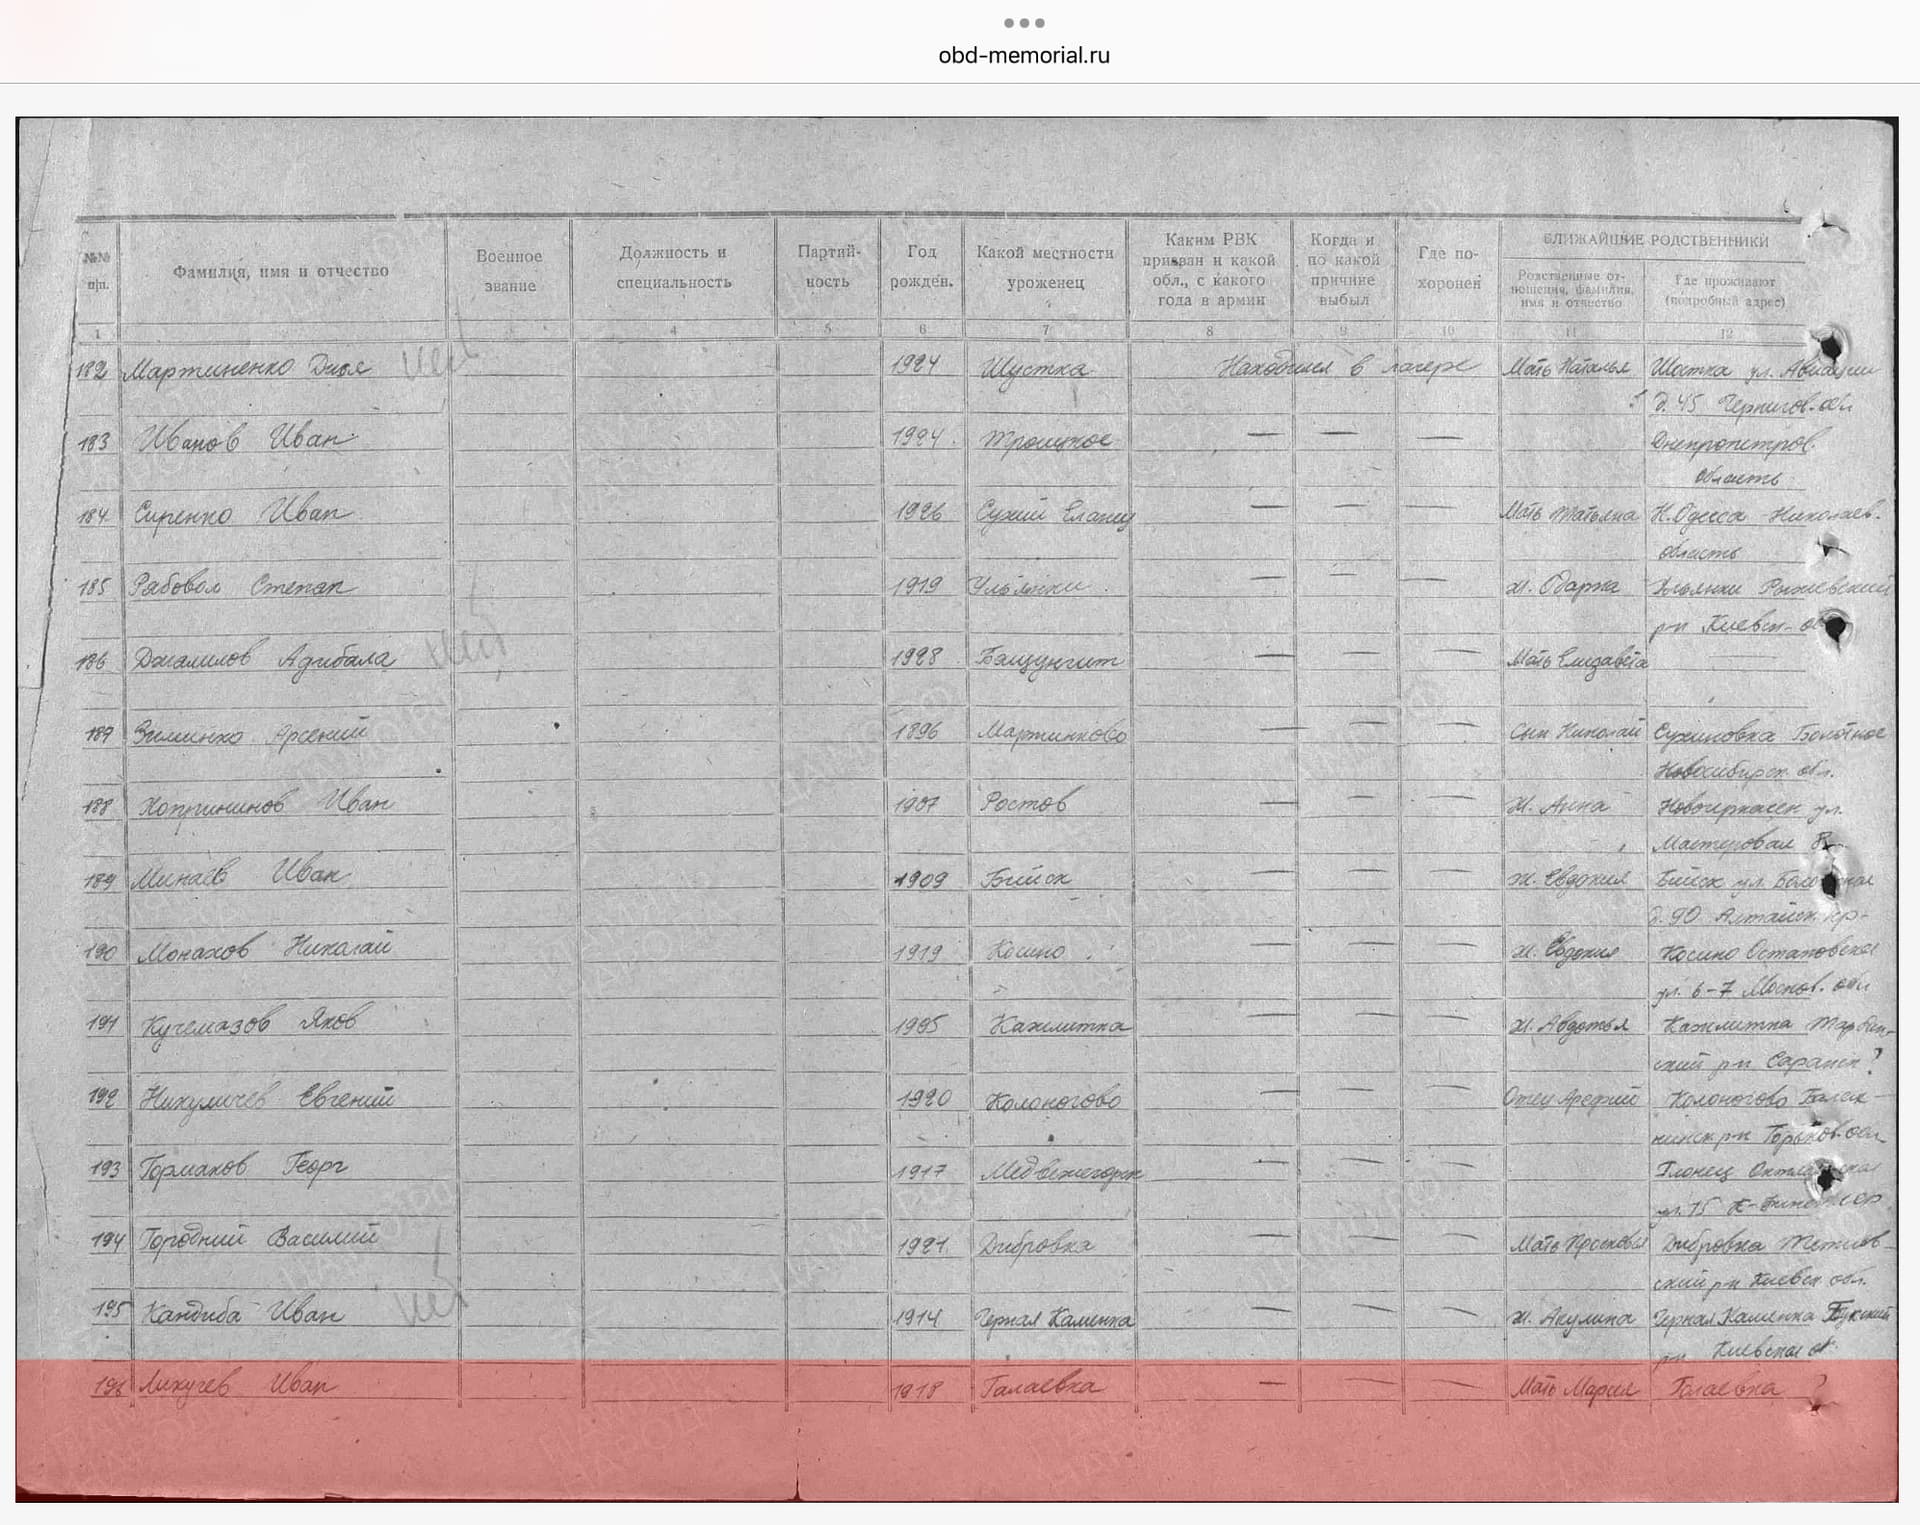 obd-memorial.ru
№№ п/п.
Фамилия, имя и отчество
Военное звание
Должность и специальность
Партий-ность
Год рожден.
Какой местности уроженец
Каким РВК призван и какой обл., с какого года в армии
Когда и по какой причине выбыл
Где по-хоронен
БЛИЖАЙШИЕ РОДСТВЕННИКИ
Родственные от-ношения, фамилия, имя и отчество
Где проживают (подробный адрес)
1 3 4 5 6 7 8 9 10 11 12
182 Мартиненко 1924 Шустка Находился в лагере Мать Наталья Шостка ул. Авиации
д. 45 Чернигов. обл
183 Иванов Иван 1924. Троицкое — — — Днепропетров.
область
184 Сиренко Иван 1926 Сухий Еланец — — — Мать Татьяна Н. Одесса Николаев.
область
185 Рабовол Степан 1919 Ульянки — — — ж. Одарка Ульянки
р-н Киевск-об
186 Джалилов Адибала 1928 — — — Мать Елизавета
187 Зиминко Арсений 1896 Мартинково — — — Сын Николай Сухиновка Болотное
Новосибирск. обл.
188 Иван 1907 Ростов — — — ж. Анна Новочеркасск ул.
Мастеровая
189 Минаев Иван 1909 Бийск — — — ж. Евдокия Бийск ул.
д. 90 Алтайск. кр-
190 Монахов Николай 1919 Косино — — — ж. Евдокия Косино
ул. 6-7 Москов. обл
191 Кучемазов Яков 1905 Кажлитка — — — ж. Авдотья Кажлитка
ский р-н Саранск ?
192 Никуличев Евгений 1920 Колоногово — — — Отец Арефий Колоногово
р-н Горьков. обл
193 Гормаков Георг 1917 Медвежегорск — — — Олонец
ул. 15
194 Городний Василий 1921. Дибровка — — — Мать Дибровка Тетиев-
ский р-н Киевск. обл.
195 Кандиба Иван 1914 Черная Каменка — — — ж. Акулина Черная Каменка Букский
р-н Киевская об.
196 Лихучев Иван 1918 Галаевка — — — Мать Мария Галаевка ?